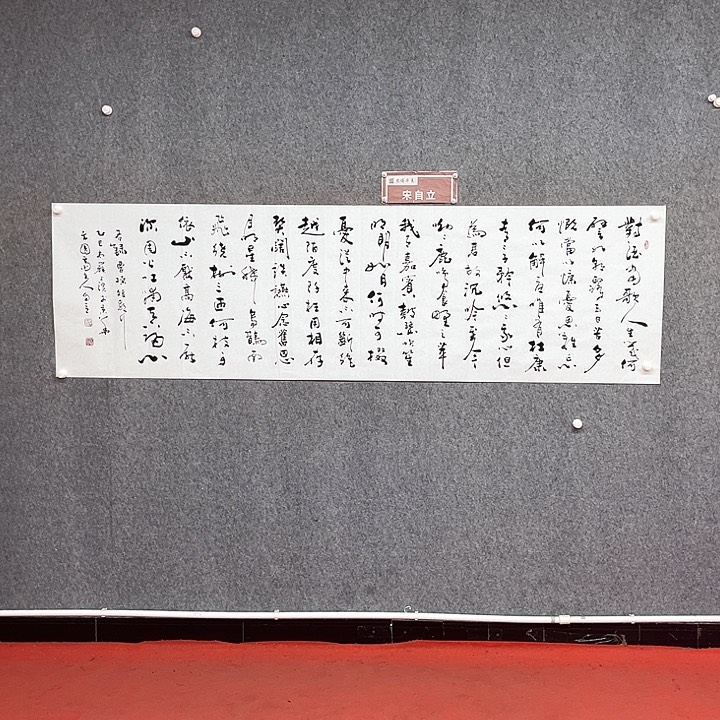 宋自立
對酒當歌人生幾何
譬如朝露去日苦多
慨當以慷憂思難忘
何以解憂唯有杜康
青青子衿悠悠我心但
為君故沉吟至今
呦呦鹿鳴食野之苹
我有嘉賓鼓瑟吹笙
明明如月何時可掇
憂從中來不可斷絕
越陌度阡枉用相存
契闊談讌心念舊恩
月明星稀烏鵲南
飛繞樹三匝何枝可
依山不厭高海不厭
深周公吐哺天下歸心
右錄曹操短歌行
乙巳